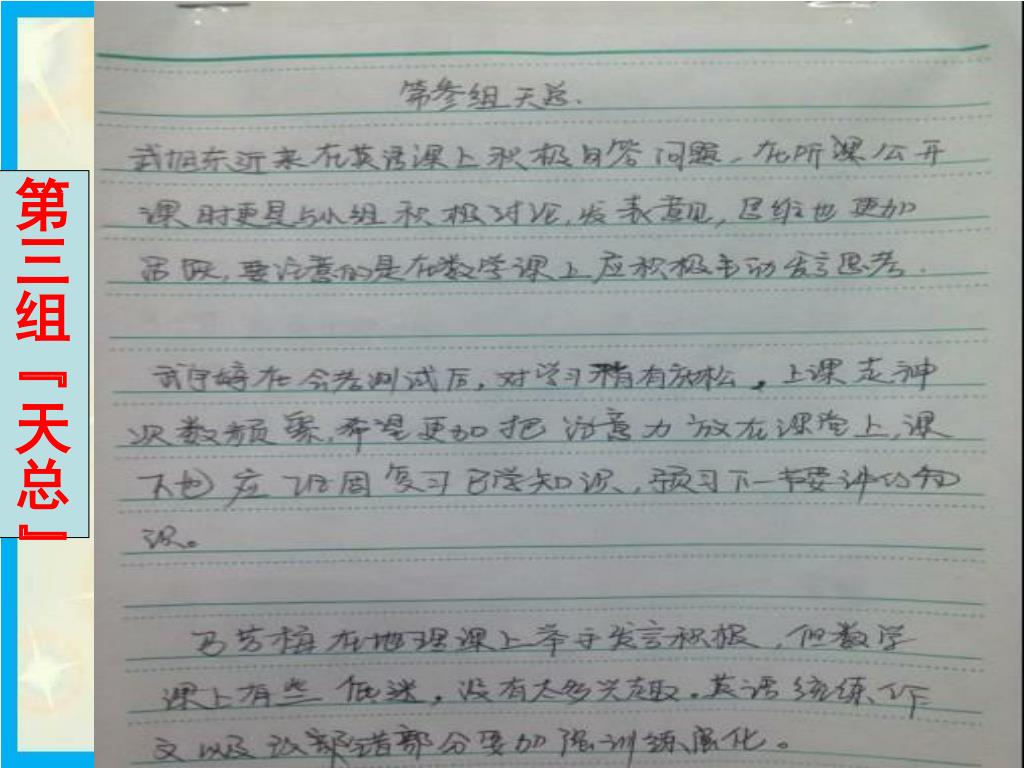 第三组『天总』
第参组天总.
武旭东近来在英语课上积极回答问题，在听课公开
课时更是与小组积极讨论，发表意见，思维也更加
活跃，要注意的是在数学课上应积极主动发言思考.
武宇婷在会考测试后，对学习稍有放松，上课走神
次数频繁，希望更加把注意力放在课堂上，课
下也应巩固复习已学知识，预习下一节要讲的知
识。
马芳梅在地理课上举手发言积极，但数学
课上有些低迷，没有太多兴趣。英语统练作
文以及改错部分要加强训练强化。